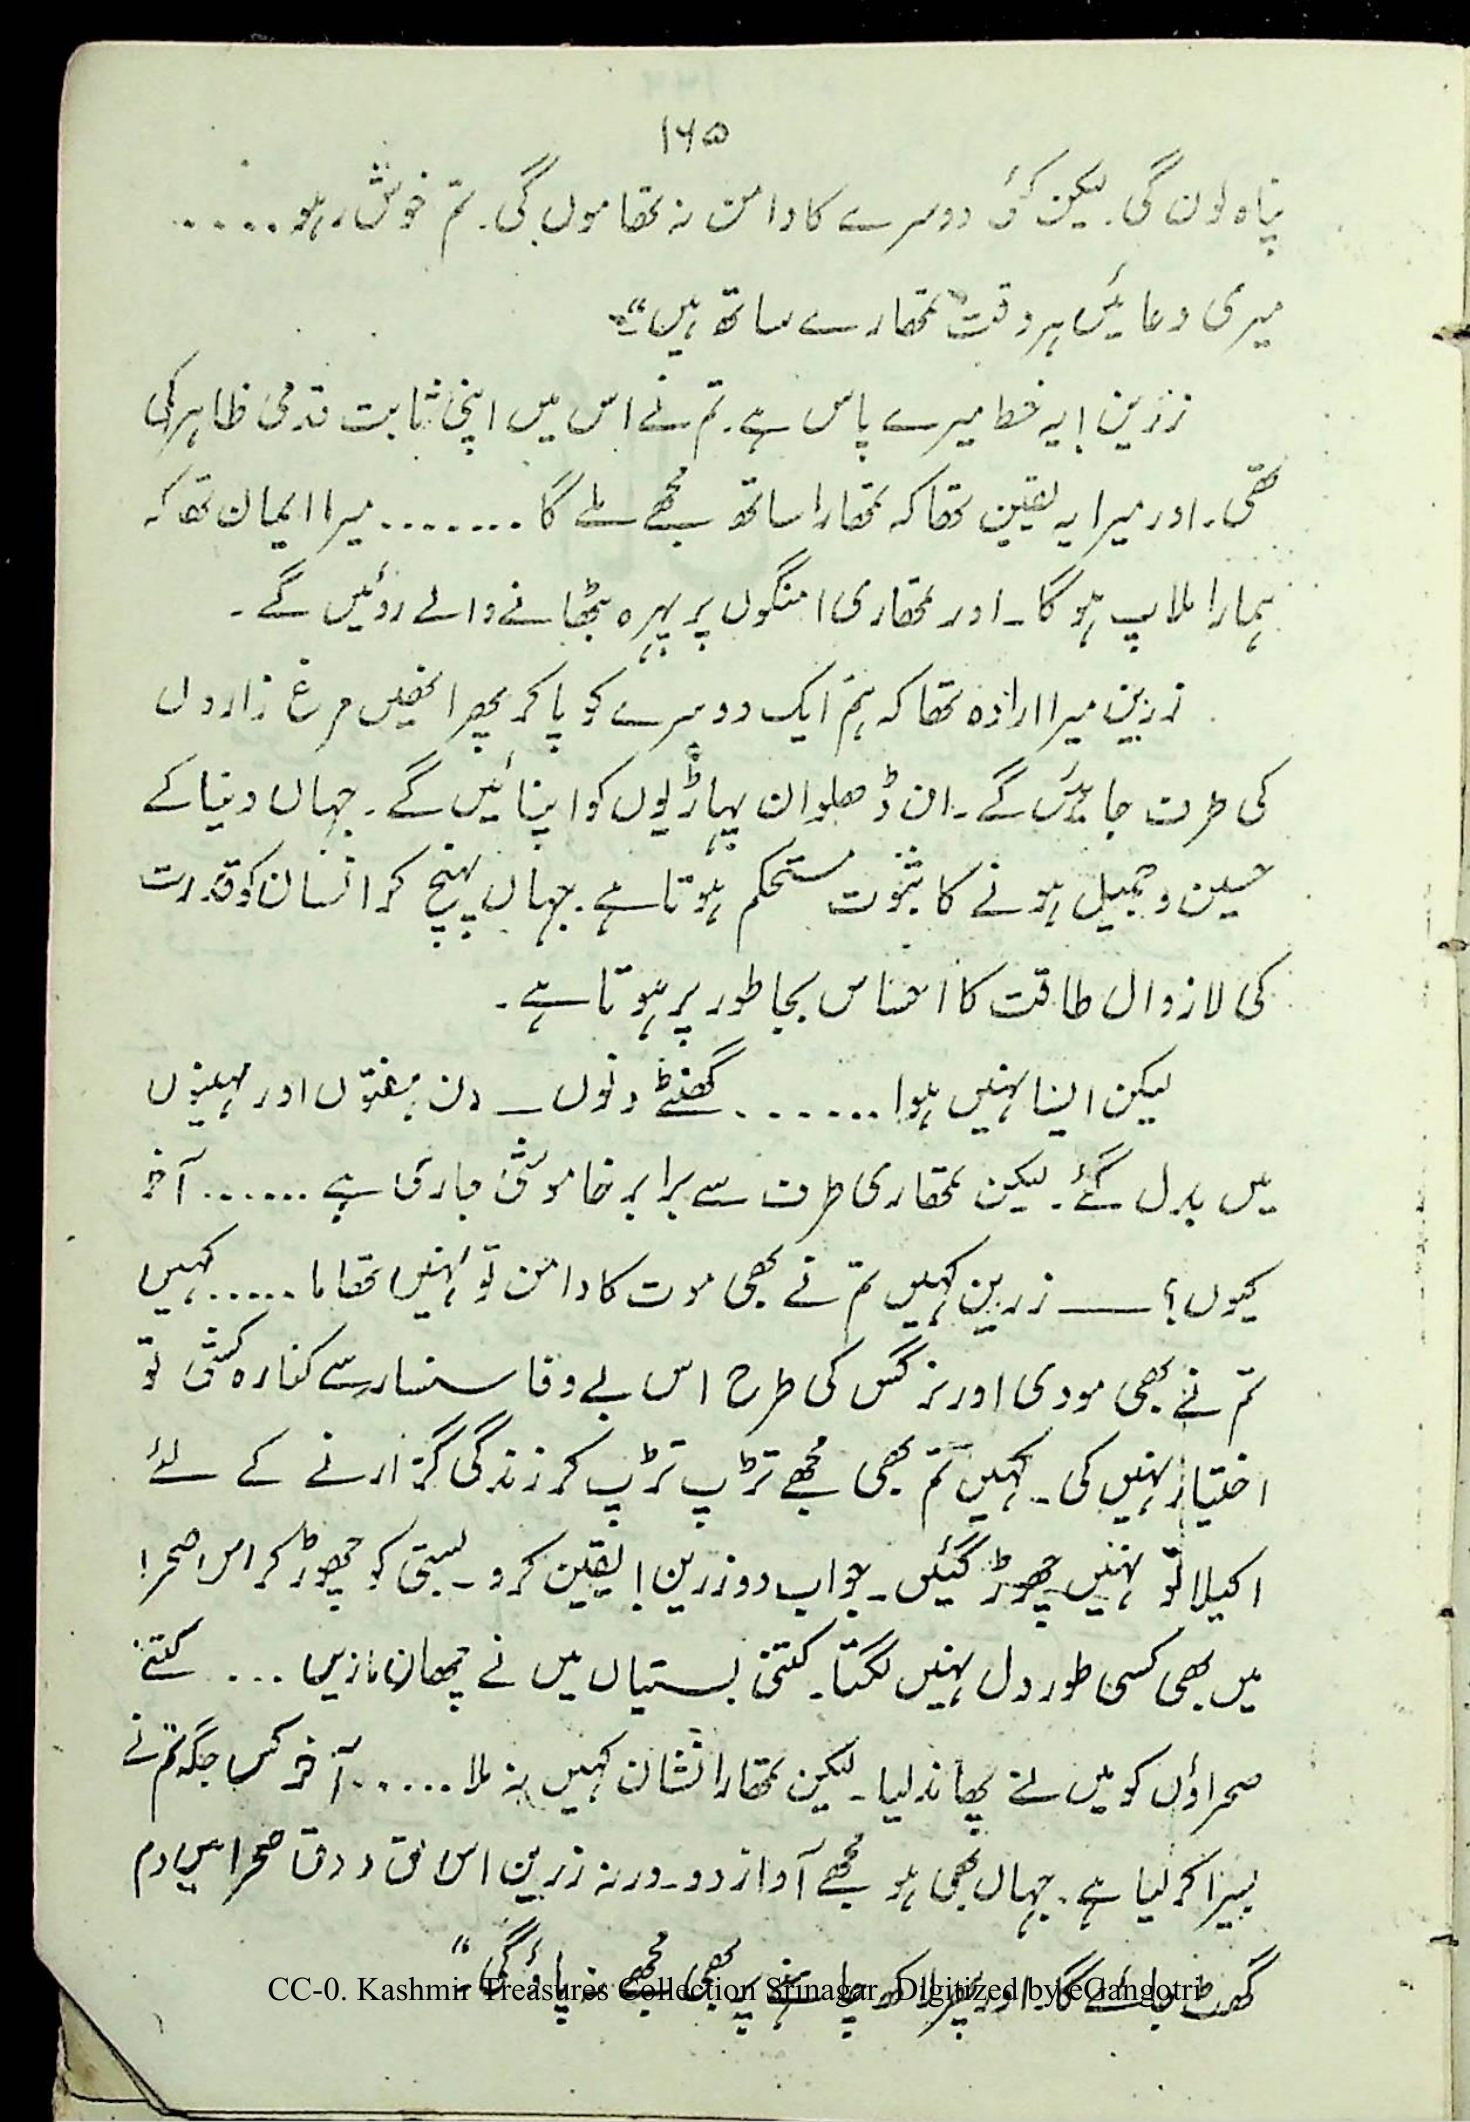 ۱۶۵
پناہ لوں گی۔ لیکن کسی دوسرے کا دامن نہ تھاموں گی۔ تم خوش رہو.....
میری دعائیں ہر وقت تمھارے ساتھ ہیں“
زرین! یہ خط میرے پاس ہے۔ تم نے اس میں اپنی ثابت قدمی ظاہر کی
تھی۔ اور میرا یہ یقین تھا کہ تمھارا ساتھ مجھے ملے گا ....... میرا ایمان تھا کہ
ہمارا ملاپ ہو گا۔ اور تمھاری امنگوں پر پہرہ بٹھانے والے روئیں گے۔
زرین میرا ارادہ تھا کہ ہم ایک دوسرے کو پا کر پھر انھیں مرغ زاروں
کی طرف جائیں گے۔ ان ڈھلوان پہاڑیوں کو اپنائیں گے۔ جہاں دنیا کے
حسین و جمیل ہونے کا ثبوت مستحکم ہوتا ہے۔ جہاں پہنچ کر انسان کو قدرت
کی لازوال طاقت کا احساس بجا طور پر ہوتا ہے۔
لیکن ایسا نہیں ہوا ....... گھنٹے دنوں ـ دن ہفتوں اور مہینوں
میں بدل گئے۔ لیکن تمھاری طرف سے برابر خاموشی جاری ہے ...... آخر
کیوں؟ ــــ زرین کہیں تم نے بھی موت کا دامن تو نہیں تھاما ..... کہیں
تم نے بھی مودی اور نرگس کی طرح اس بے وفا سنسار سے کنارہ کشی تو
اختیار نہیں کی۔ کہیں تم بھی مجھے تڑپ تڑپ کر زندگی گزارنے کے لئے
اکیلا تو نہیں چھوڑ گئیں۔ جواب دو زرین! یقین کرو۔ بستی کو چھوڑ کر اس صحرا
میں بھی کسی طور دل نہیں لگتا۔ کتنی بستیاں میں نے چھان ماریں ... کتنے
صحراؤں کو میں نے پھاند لیا۔ لیکن تمھارا نشان کہیں نہ ملا ..... آخر کس جگہ تم نے
بسیرا کر لیا ہے۔ جہاں بھی ہو مجھے آواز دو۔ ورنہ زرین اس لق و دق صحرا میں دم
گھٹ جائے گا۔ اور پھر لاکھ چاہنے پر بھی مجھے نہ پاؤ گی“
CC-0. Kashmir Treasures Collection Srinagar. Digitized by eGangotri